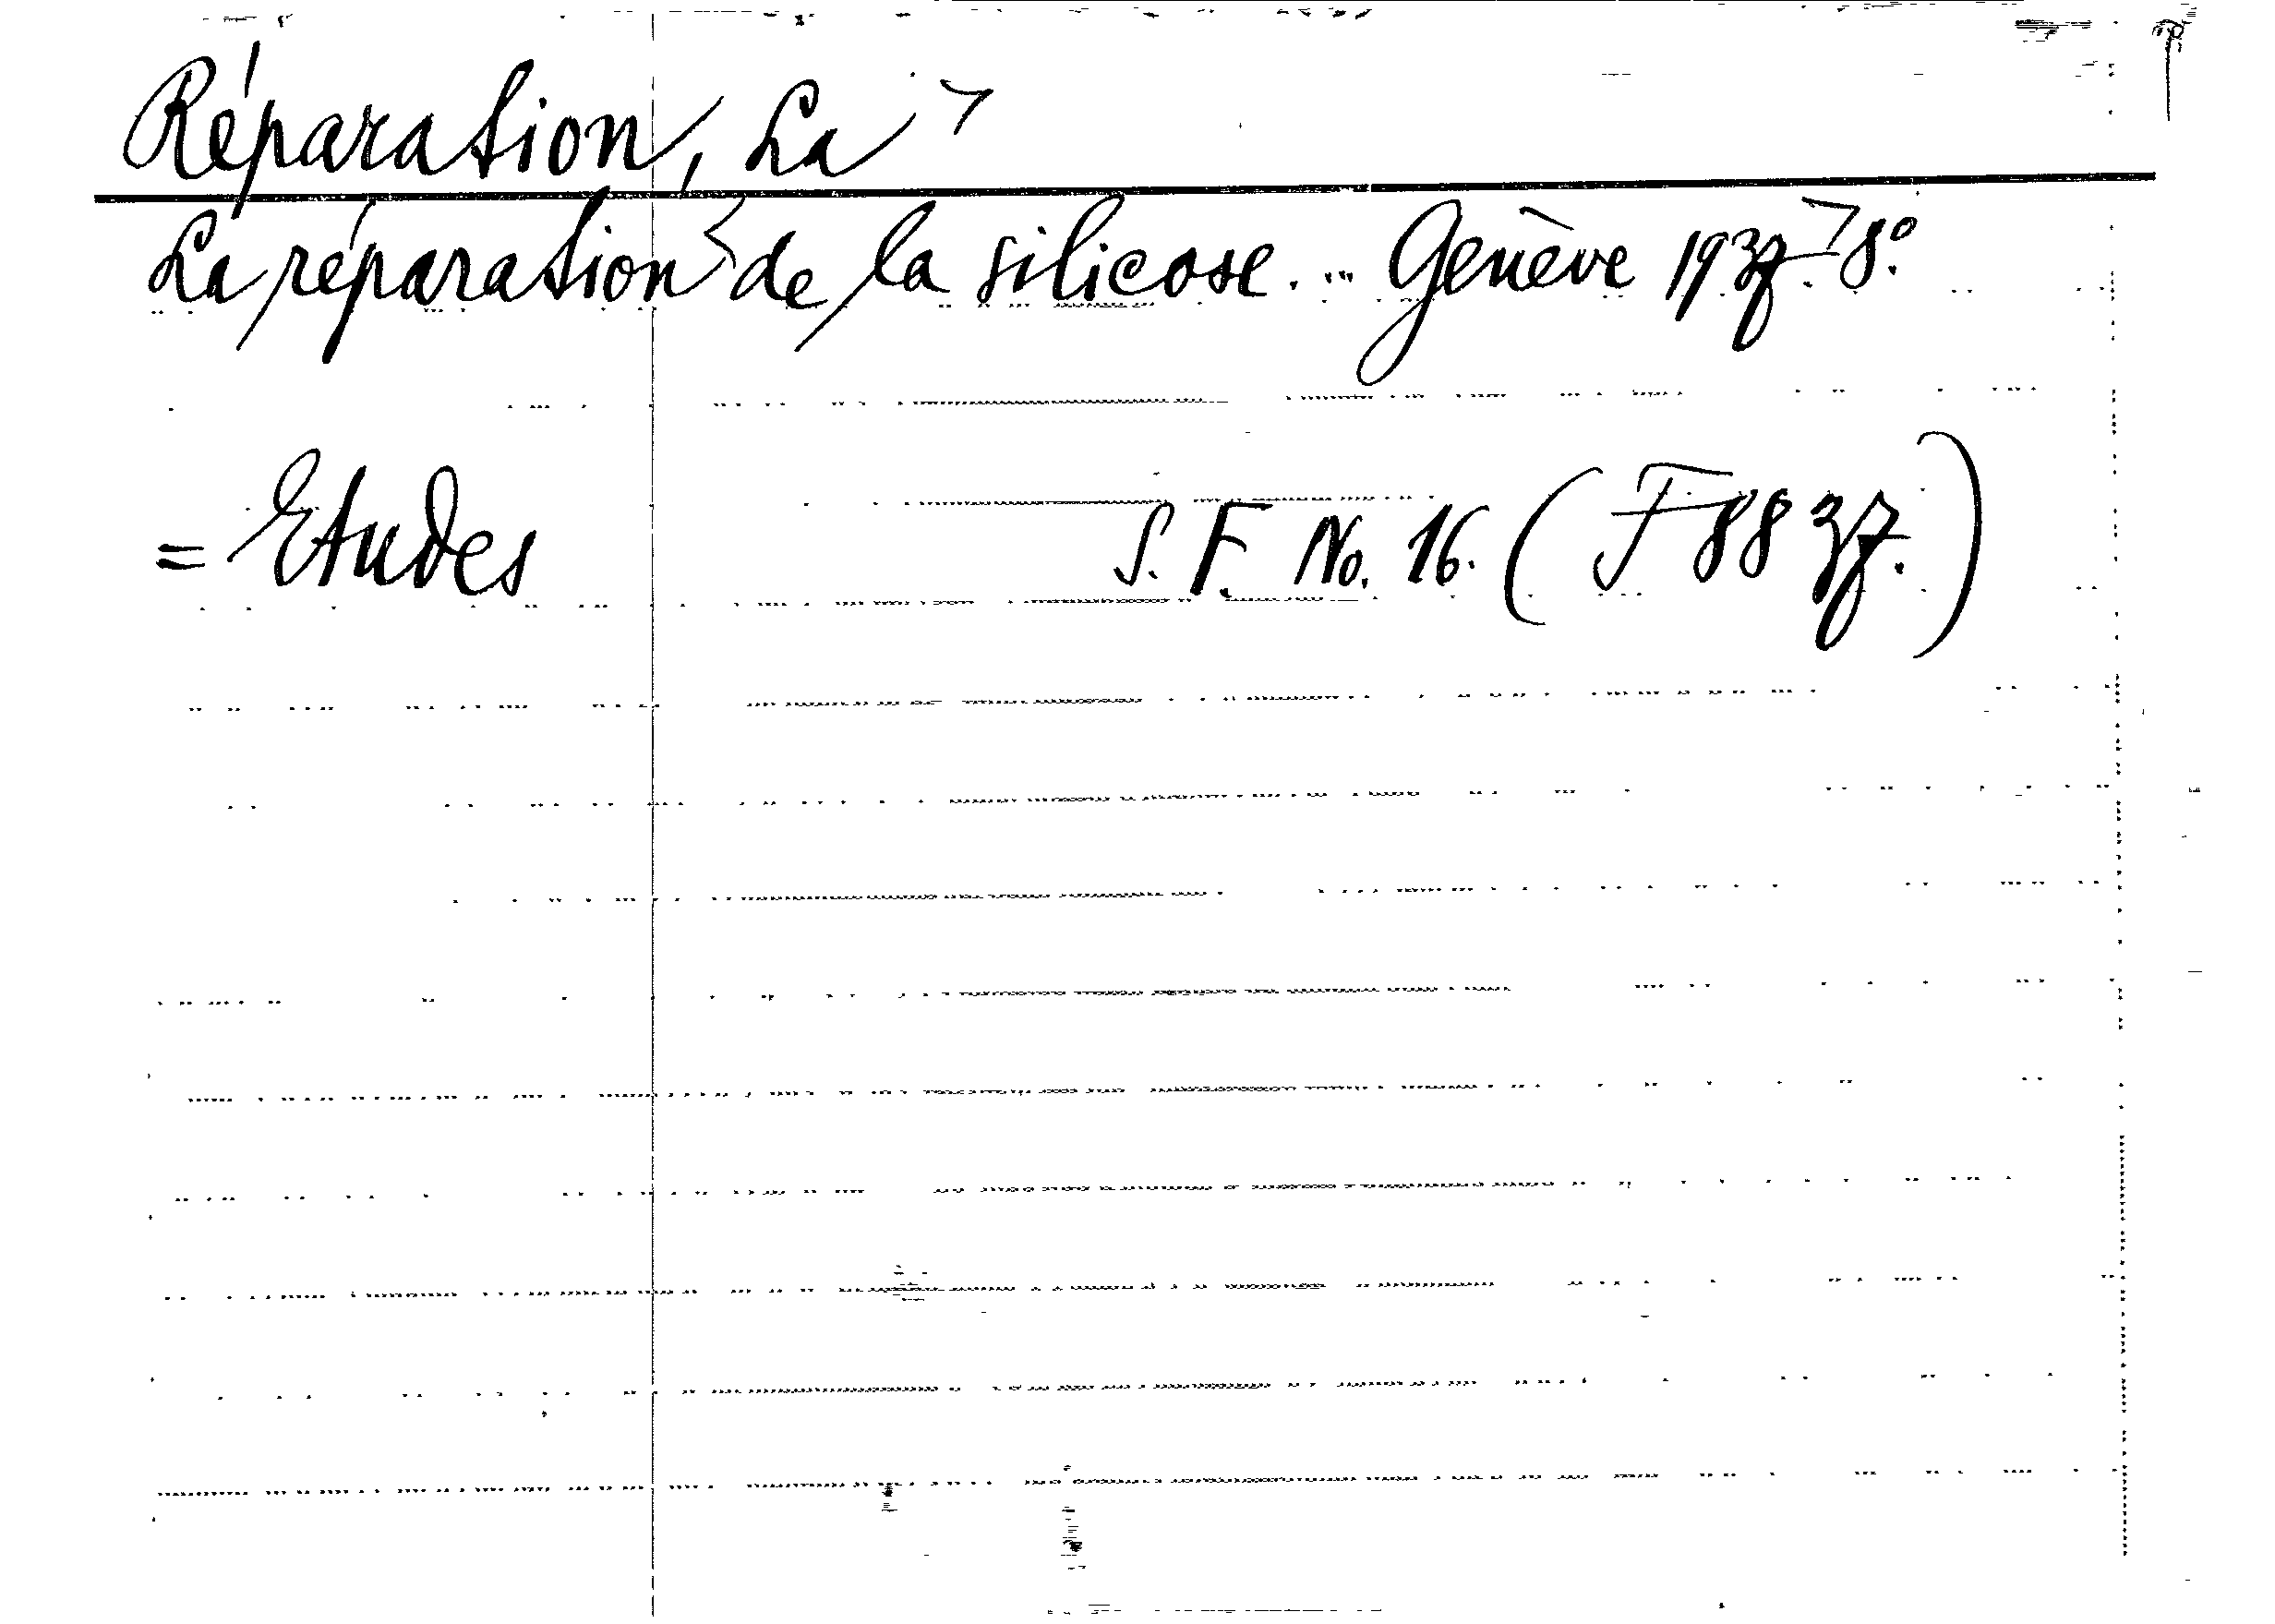 Réparation, La
La réparation de la silicose... Genève 1937. 8.º
= Etudes S. F. No. 16. (F 88 37.)